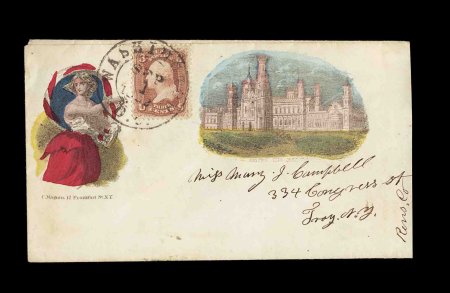 WASHIN
SEP
1
3 CENTS
C. Magnus, 12 Frankfort St. N.Y.
Miss Mary J. Campbell
334 Congress st
Troy. N.Y.
Rens. Co